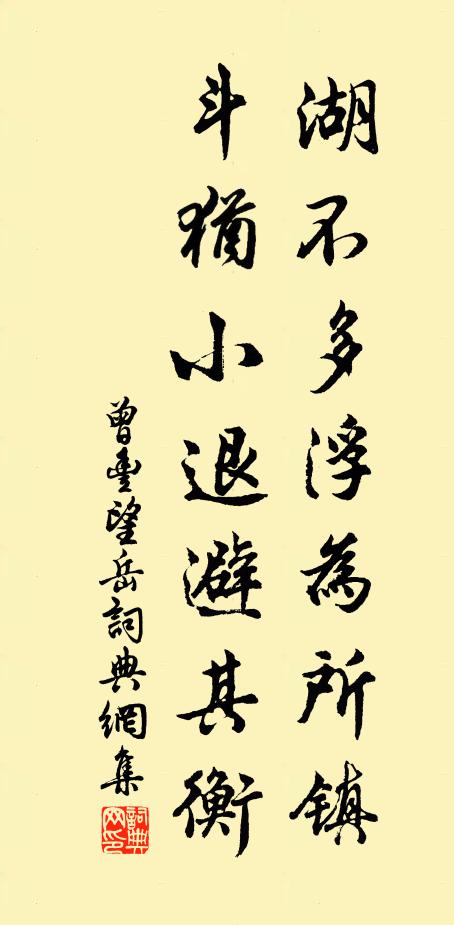 湖不多浮為所鎮
斗猶小退避其衡
曾豊望岳詞典網集
詞典网印